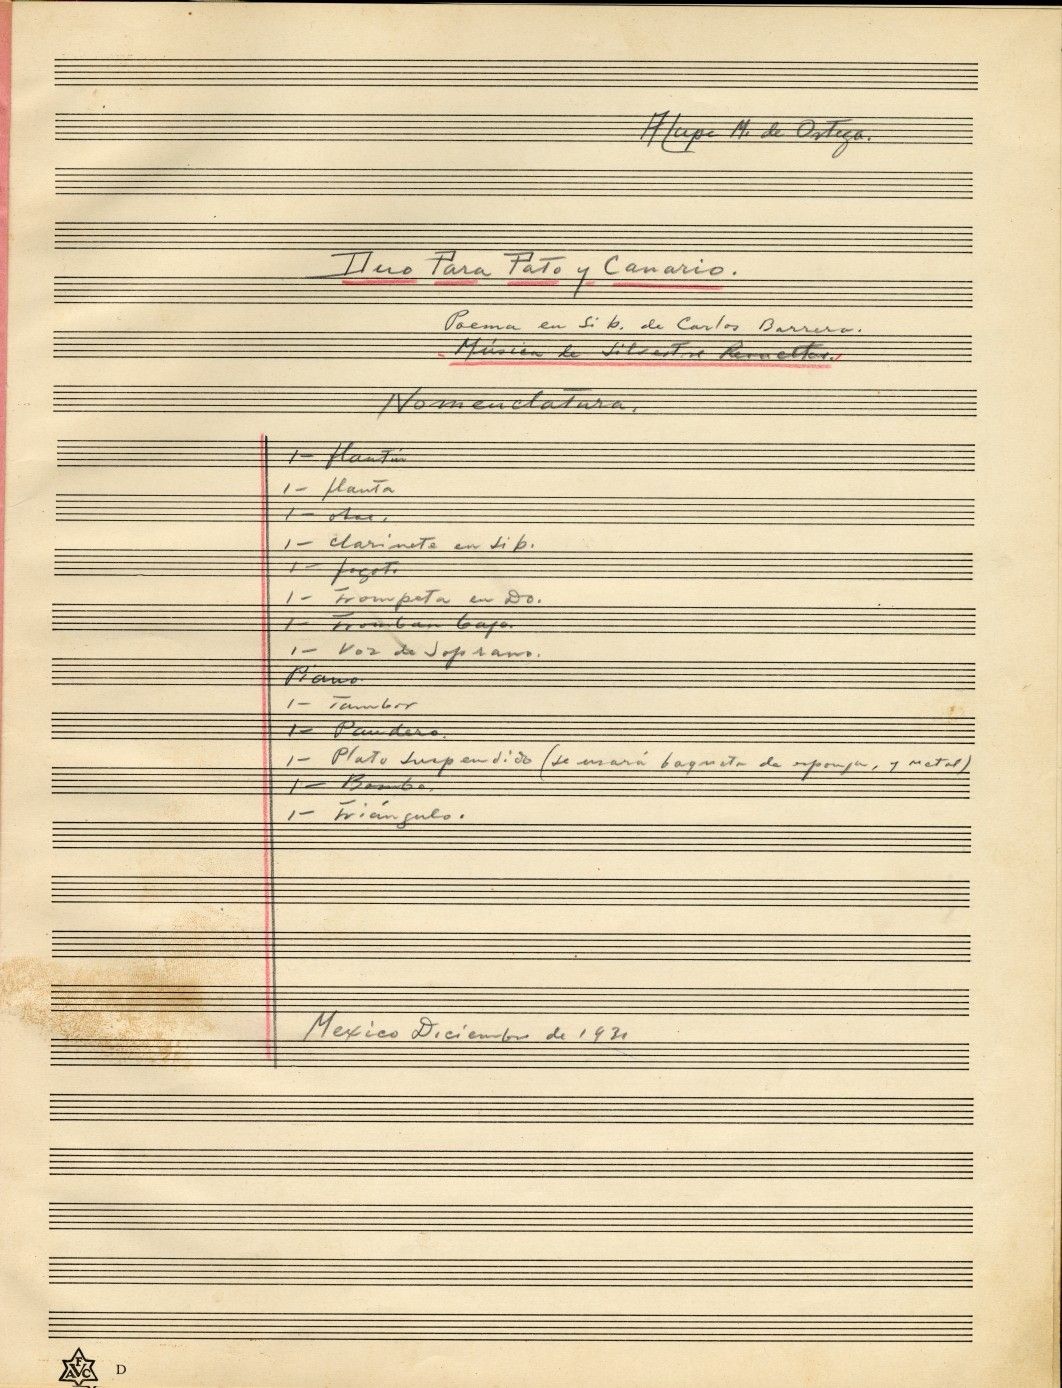 A Lupe M. de Ortega.
Duo Para Pato y Canario.
Poema en Si b. de Carlos Barrera.
Música de Silvestre Revueltas.
Nomenclatura.
1- flautín
1- flauta
1- oboe.
1- clarinete en Si b.
1- fagot.
1- Trompeta en Do.
1- Trombon bajo.
1- Voz de Soprano.
Piano.
1- Tambor
1- Pandero.
1- Plato Suspendido (se usará baqueta de esponja, y metal)
1- Bombo.
1- Triángulo.
Mexico Diciembre de 1931
FAVC
D